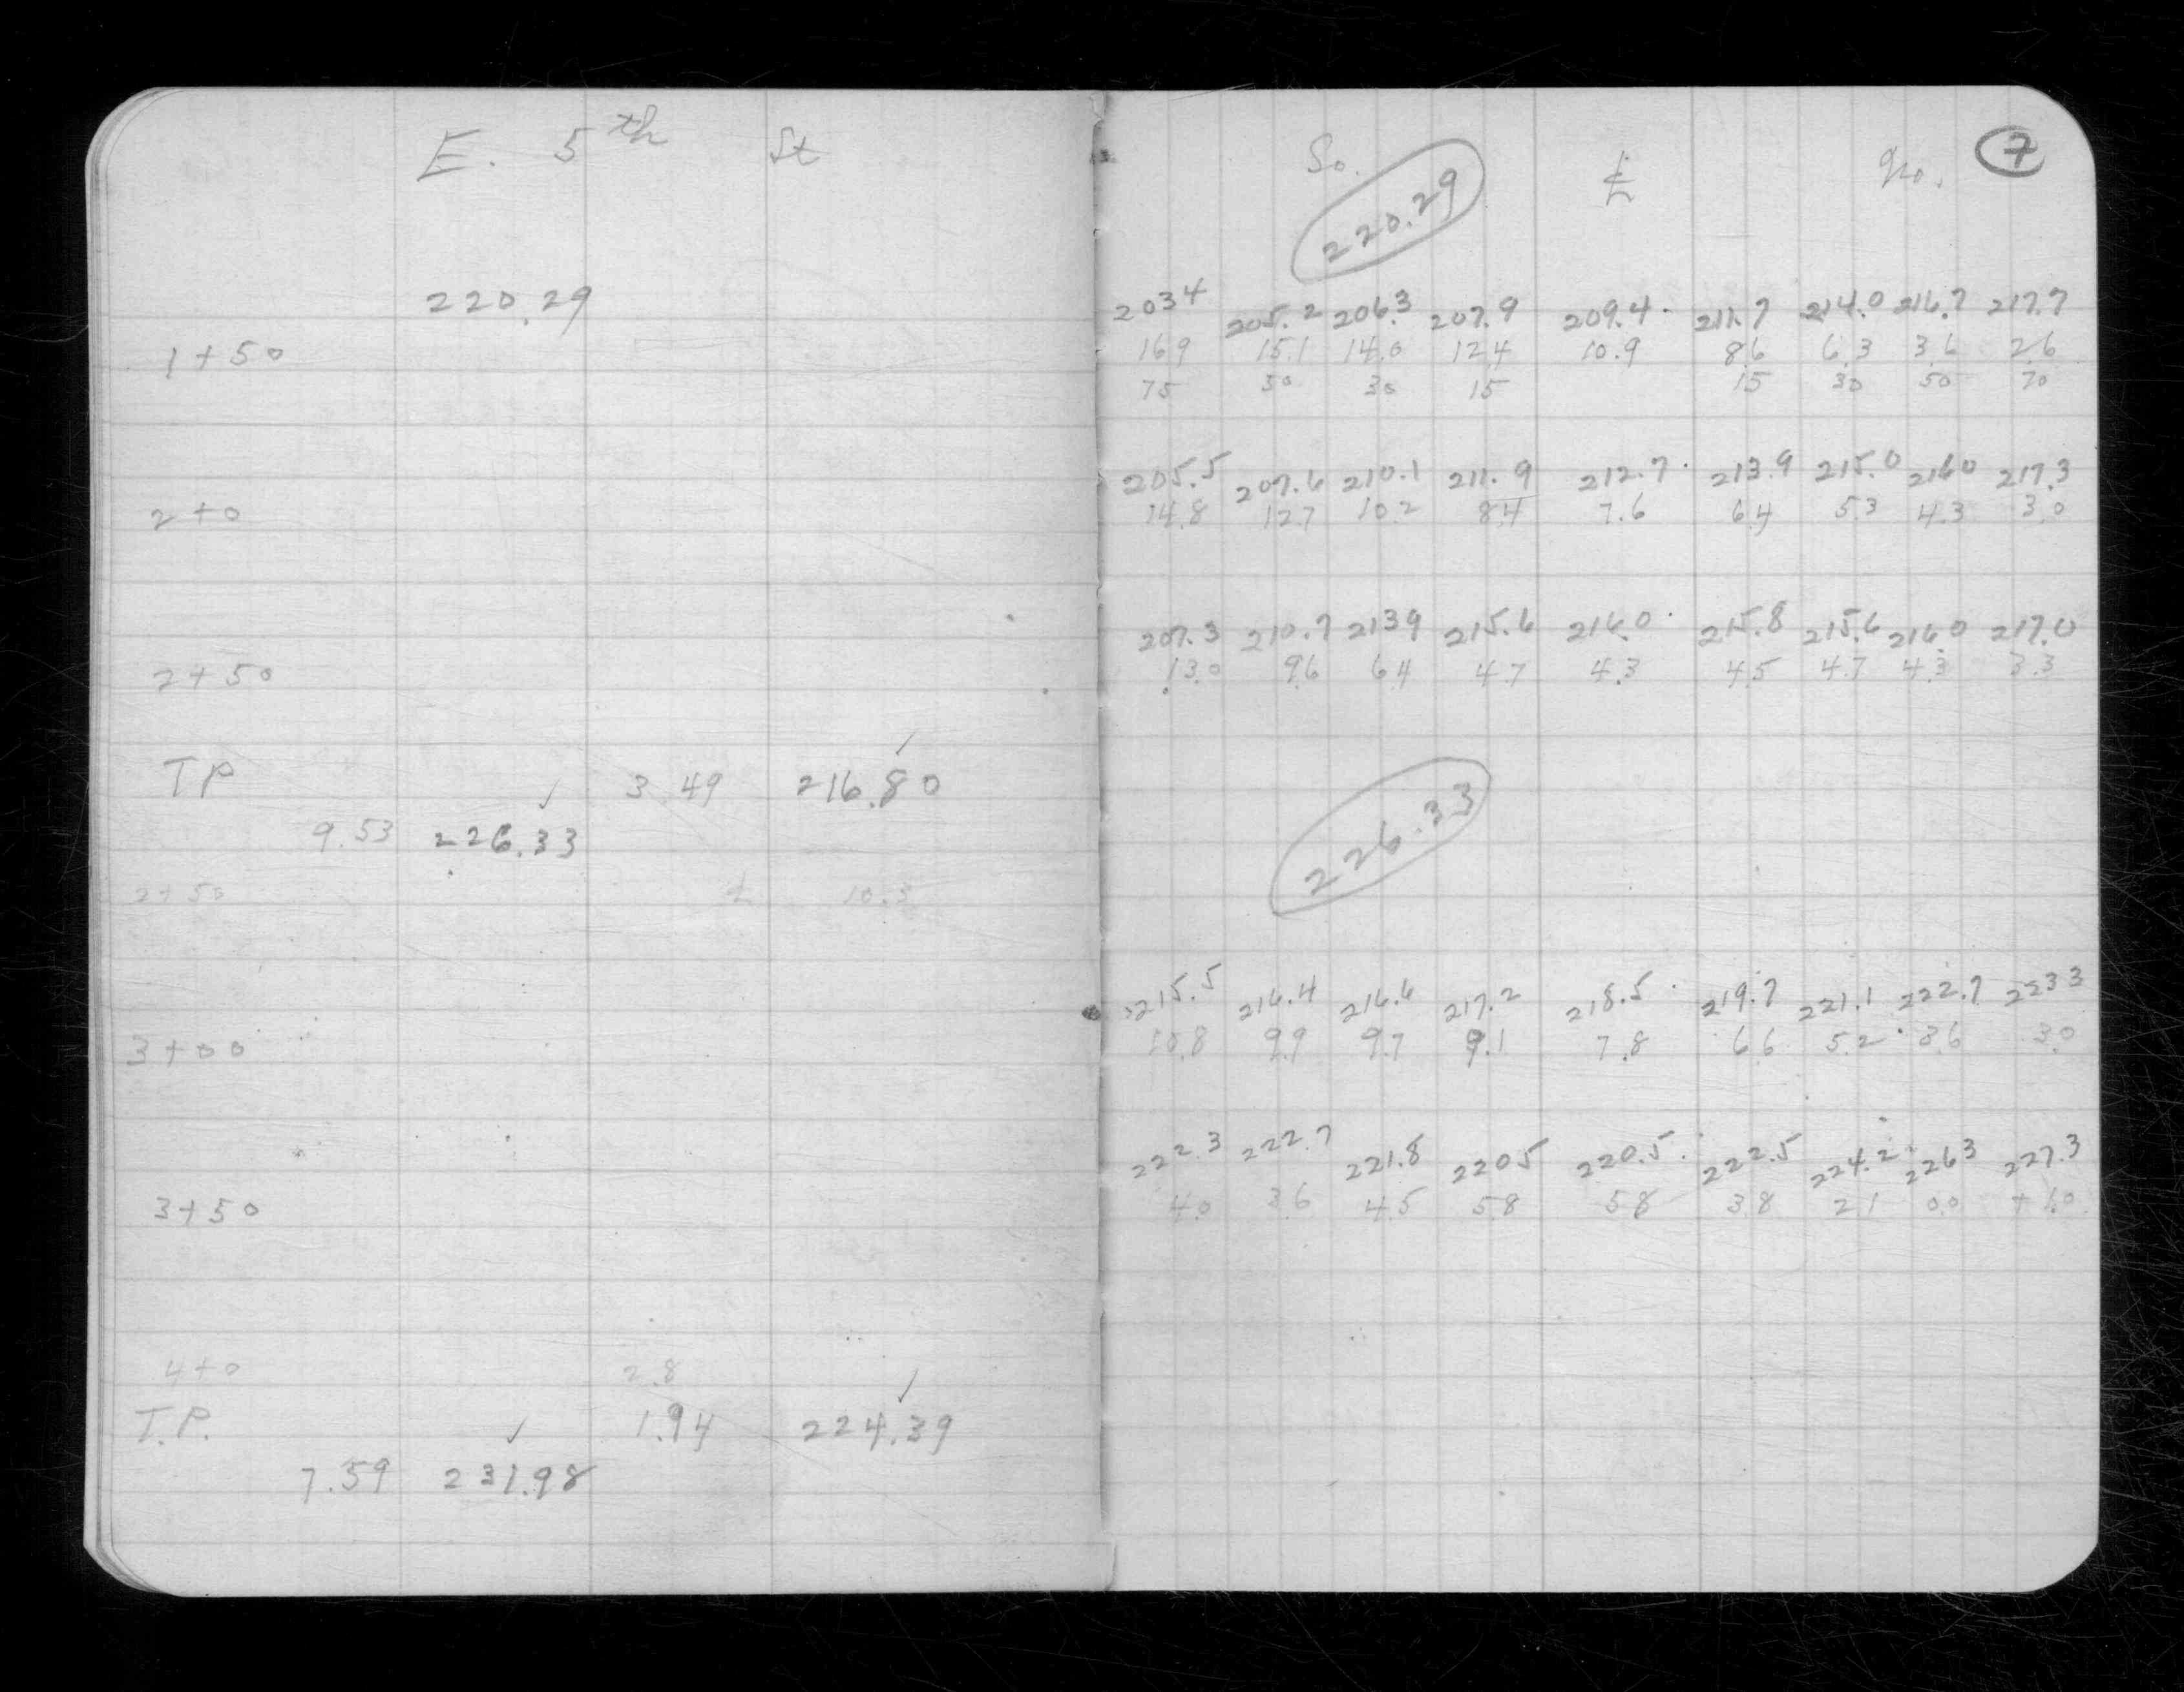 E. 5th St
220.29
1+50
2+0
2+50
TP 3.49 216.80
9.53 226.33
2+50 ℄ 10.3
3+00
3+50
4+0 2.8
T.P. 1.94 224.39
7.59 231.98
7
So. ℄ No.
220.29
203 4 205.2 206.3 207.9 209.4 211.7 214.0 216.7 217.7
16 9 15.1 14.0 12 4 10.9 8 6 6.3 3.6 2.6
75 50 30 15 15 30 50 70
205.5 207.6 210.1 211.9 212.7 213.9 215.0 216 0 217.3
14.8 12.7 10.2 8.4 7.6 6.4 5.3 4.3 3.0
207.3 210.7 213 9 215.6 216.0 215.8 215.6 216.0 217.0
13.0 9.6 6.4 4.7 4.3 4.5 4.7 4.3 3.3
226.33
215.5 216.4 216.6 217.2 218.5 219.7 221.1 222.7 223 3
10.8 9.9 9.7 9.1 7.8 6.6 5.2 3.6 3.0
222.3 222.7 221.8 220 5 220.5 222.5 224.2 226 3 227.3
4.0 3.6 4.5 5.8 5.8 3.8 2.1 0.0 +1.0